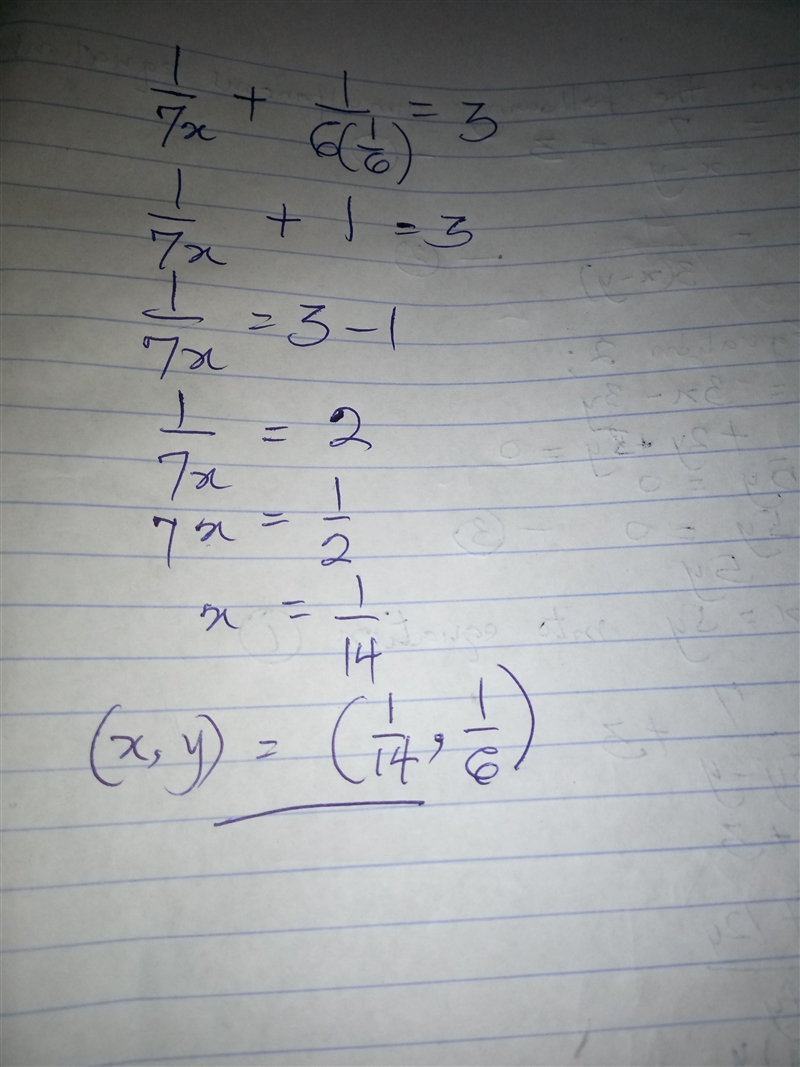 1/7x + 1/6(1/6) = 3
1/7x + 1 = 3
1/7x = 3 - 1
1/7x = 2
7x = 1/2
x = 1/14
(x, y) = (1/14, 1/6)